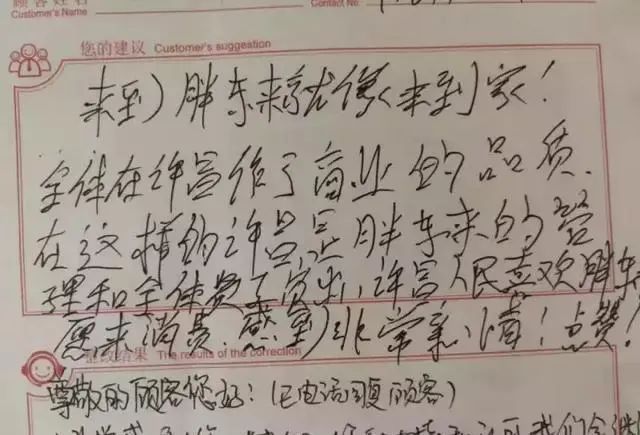 顾客姓名
Customer's Name
Contact No.
您的建议 Customer's suggestion
来到胖东来就像来到家!
全体在许昌作了商业的品质.
在这样的许昌 胖东来的管
理和全体 许昌人民喜欢胖东
愿来消费.感到非常亲情!点赞!
整改结果 The results of the correction
尊敬的顾客您好:(已电话回复顾客)